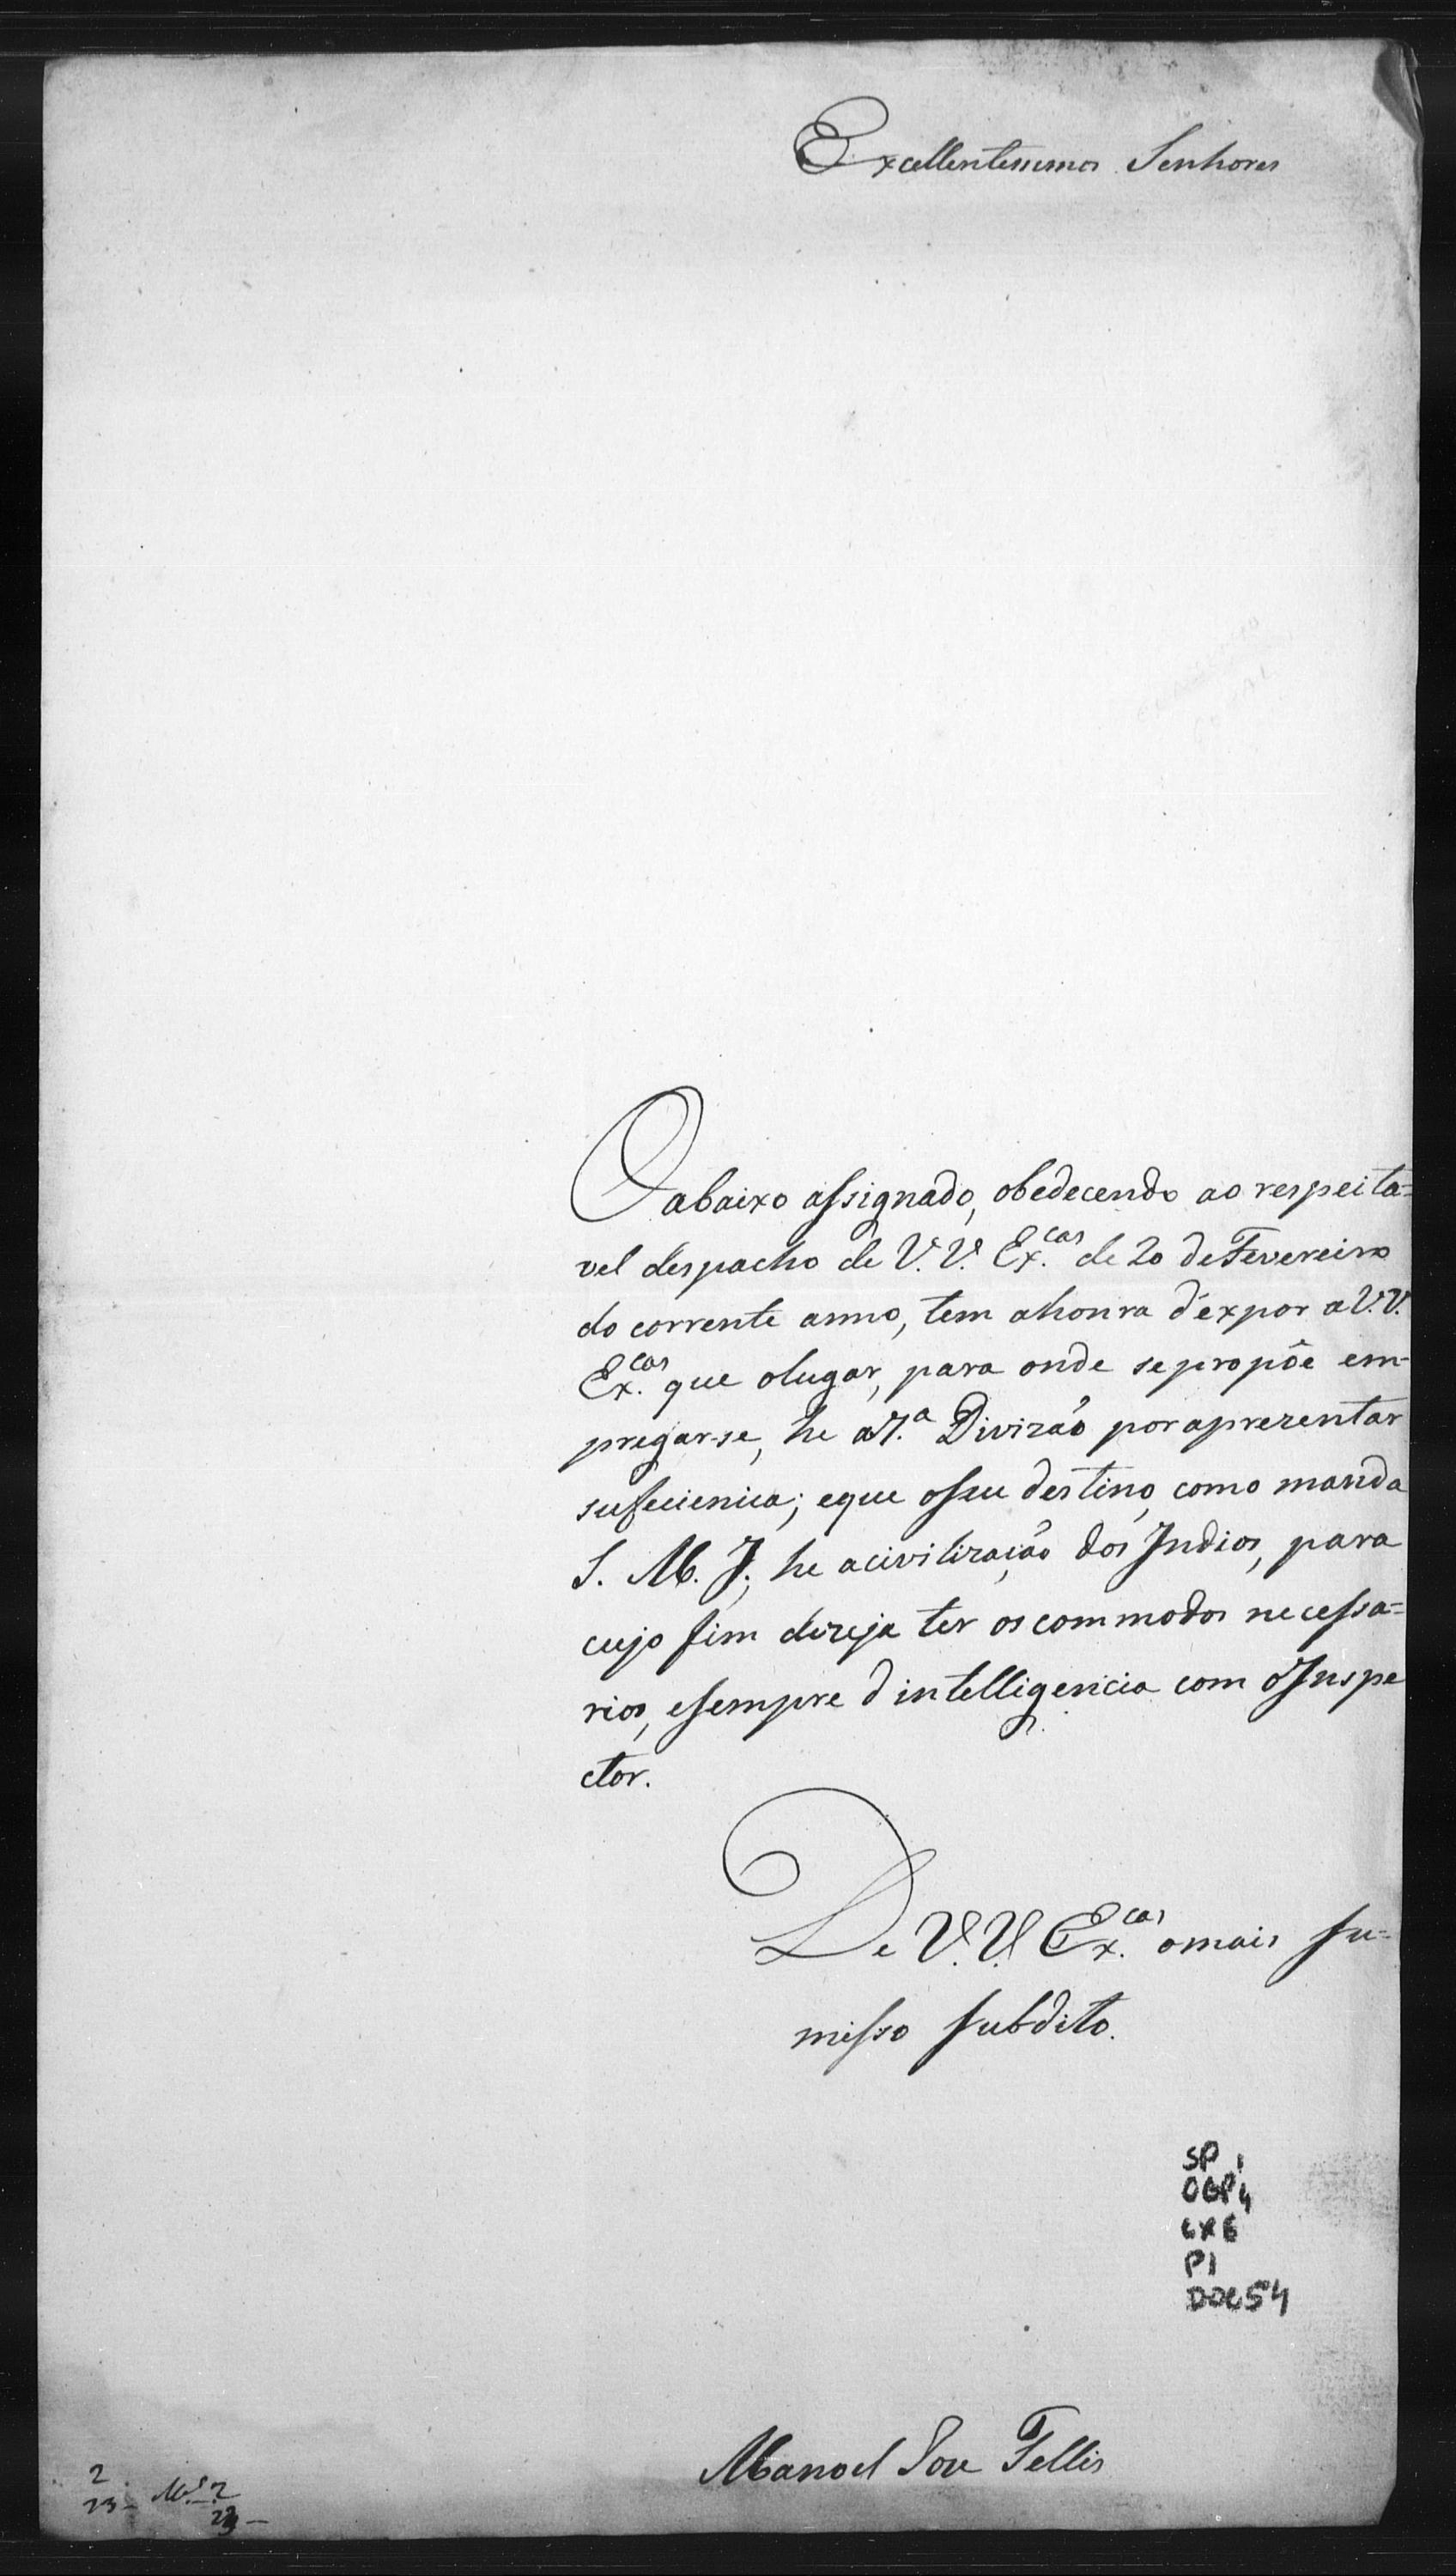 Excellentissimos Senhores
O abaixo assignado, obedecendo ao respeita=
vel despacho de V. V. Ex.cas de 20 de Fevereiro
do corrente anno, tem ahonra d'expor a V. V.
Ex.cas que olugar, para onde sepropõe em-
pregar-se, he a 7.a Divizão poraprezentar
suficiencia; eque oseu destino, como manda
S. M. J., he acivilização dos Indios, para
cujo fim dezeja ter oscommodos necessa=
rios, esempre d intelligencia com oInspe
ctor.
De V. V. Ex.cas omais su=
misso subdito.
SP 1
OGP4
CX6
P1
DOC54
Manoel Joze Tellis
2
23 -